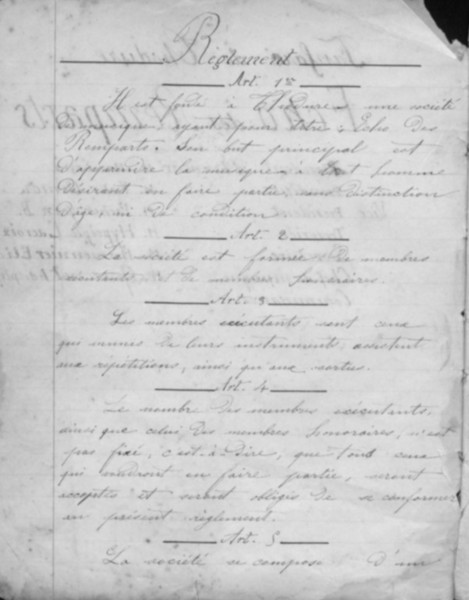 Règlement
Art. 1er
Il est fondé à une société
de musique ayant pour titre : Echo Des
Remparts. Son but principal est
d'apprendre la musique à tout homme
désirant en faire partie, sans distinction
d'âge, ni de condition
Art. 2
La société est formée de membres
exécutants et de membres honoraires.
Art. 3
Les membres exécutants sont ceux
qui munis de leurs instruments assistent
aux répétitions, ainsi qu'aux sorties.
Art. 4
Le nombre des membres exécutants,
ainsi que celui des membres honoraires, n'est
pas fixé, c'est-à-dire, que tous ceux
qui voudront en faire partie, seront
acceptés et seront obligés de se conformer
au présent règlement.
Art. 5
La société se compose d'un